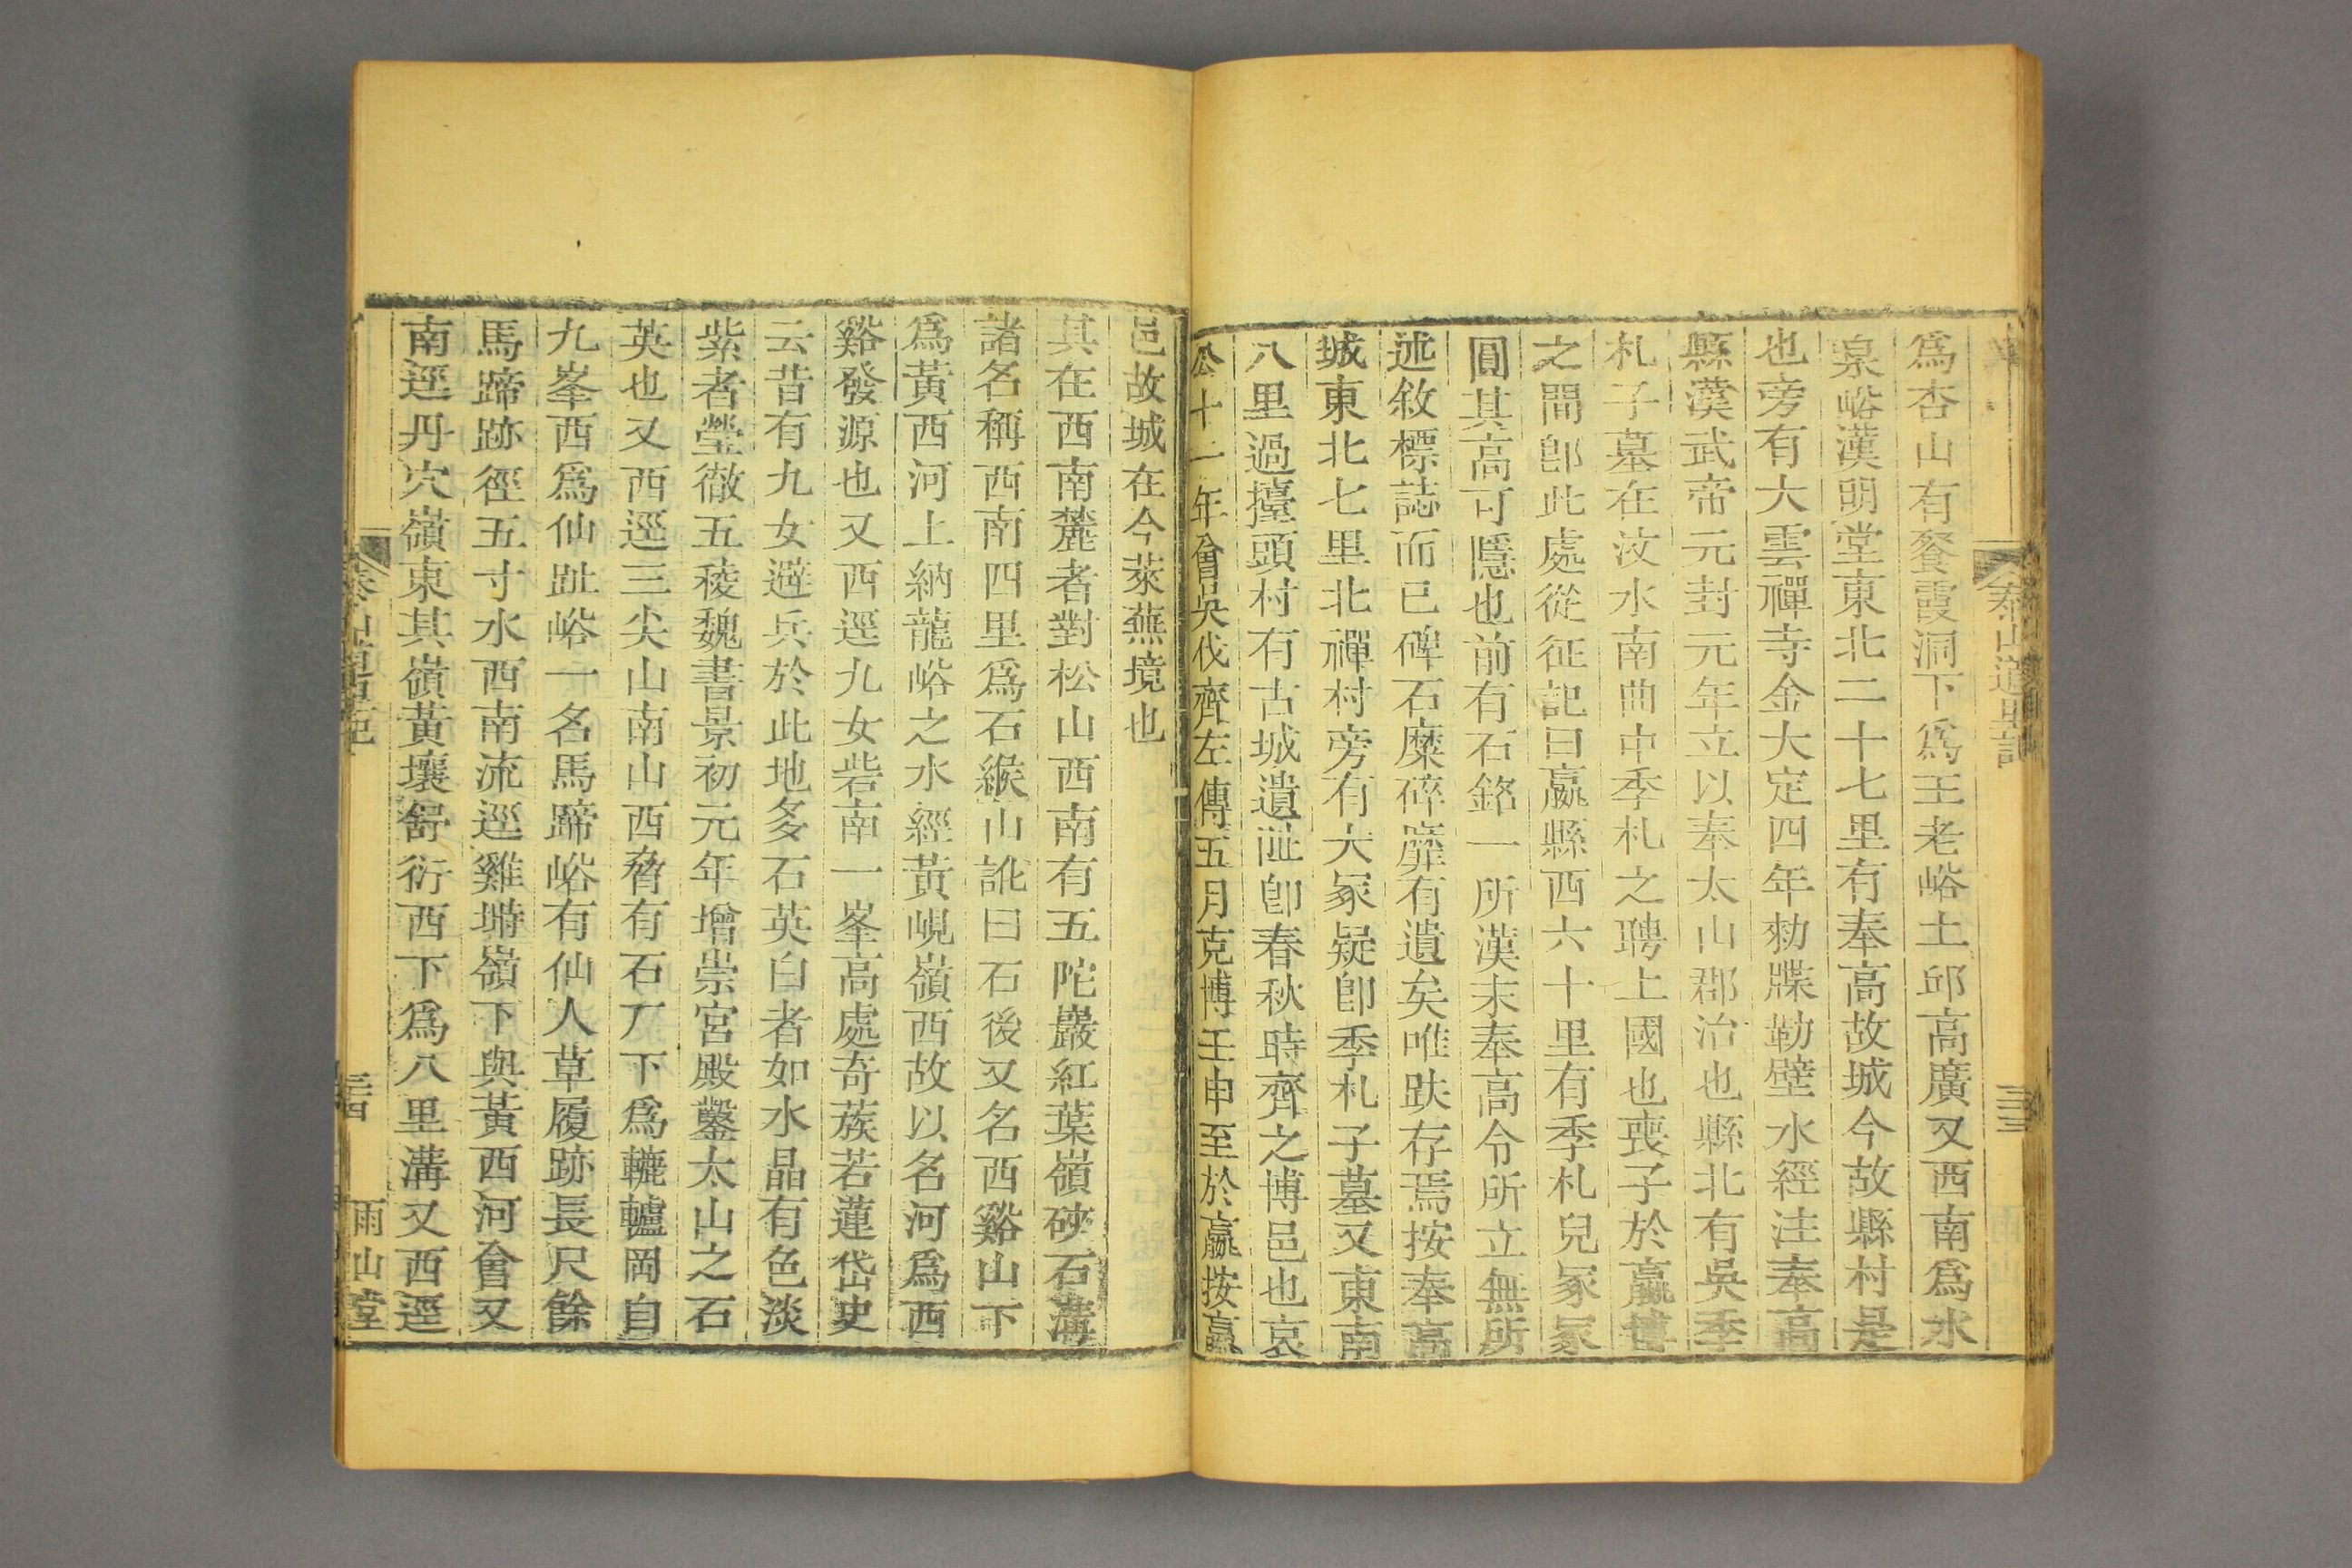 泰山道里記
三三
爲杏山有餐霞洞下爲王老峪土邱高廣又西南爲水
泉峪漢明堂東北二十七里有奉高故城今故縣村是
也旁有大雲禪寺金大定四年勑牒勒壁水經注奉高
縣漢武帝元封元年立以奉太山郡治也縣北有吳季
札子墓在汶水南曲中季札之聘上國也喪子於嬴博
之間卽此處從征記曰嬴縣西六十里有季札兒冢冢
圓其高可隱也前有石銘一所漢末奉高令所立無所
述敘標誌而已碑石糜碎靡有遺矣唯趺存焉按奉高
城東北七里北禪村旁有大冢疑卽季札子墓又東南
八里過擡頭村有古城遺阯卽春秋時齊之博邑也哀
公十一年會吳伐齊左傳五月克博壬申至於嬴按嬴
邑故城在今萊蕪境也
其在西南麓者對松山西南有五陀巖紅葉嶺硤石溝
諸名稱西南四里爲石緱山訛曰石後又名西谿山下
爲黃西河上納龍峪之水經黃峴嶺西故以名河爲西
谿發源也又西逕九女砦南一峯高處奇蔟若蓮岱史
云昔有九女避兵於此地多石英白者如水晶有色淡
紫者瑩徹五稜魏書景初元年增崇宮殿鑿太山之石
英也又西逕三尖山南山西脅有石厂下爲轆轤岡自
九峯西爲仙趾峪一名馬蹄峪有仙人草履跡長尺餘
馬蹄跡徑五寸水西南流逕雞塒嶺下與黃西河會又
南逕丹穴嶺東其嶺黃壤舒衍西下爲八里溝又西逕
三四
雨山堂